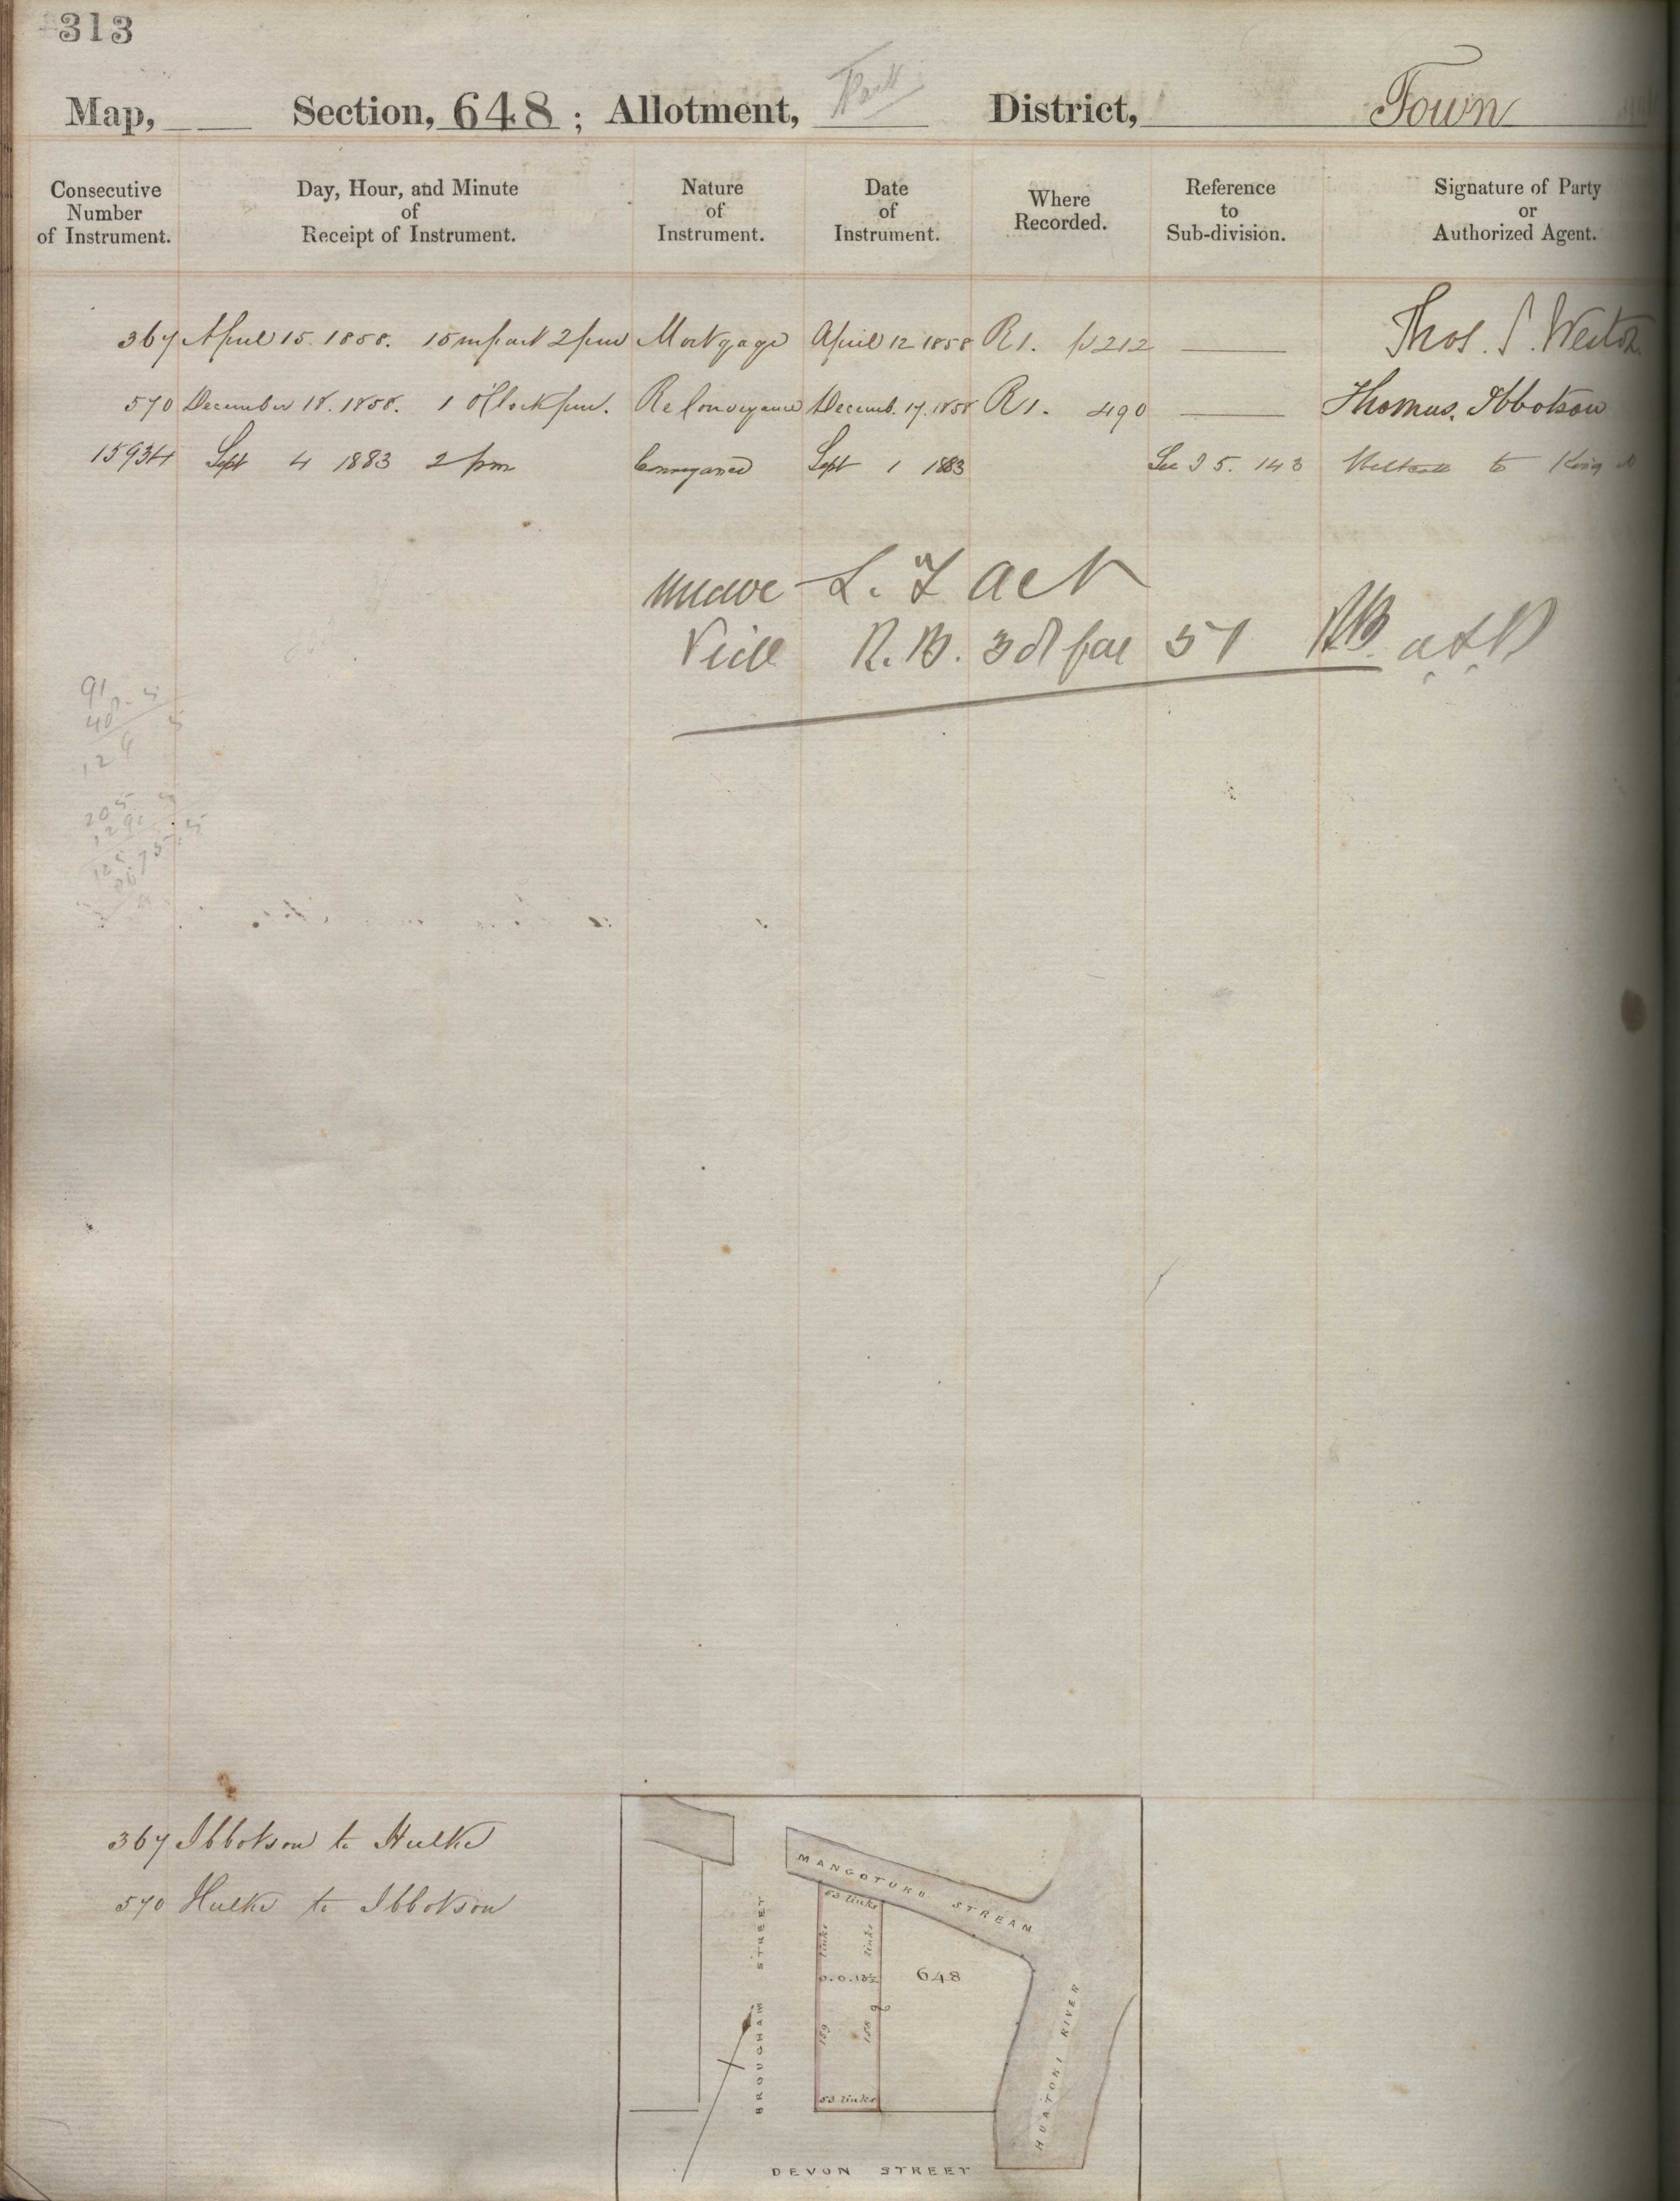 313
Map, Section, 648 ; Allotment, Part District, Town
Consecutive Number of Instrument.
Day, Hour, and Minute of Receipt of Instrument.
Nature of Instrument.
Date of Instrument.
Where Recorded.
Reference to Sub-division.
Signature of Party or Authorized Agent.
367 April 15. 1858. 15 m past 2 pm Mortgage April 12 1858 R 1. p 212 Thos. S. Weston
570 December 18. 1858. 1 o'Clock pm. ReConveyance Decemb. 17. 1858 R 1. 490 Thomas. Ibbotson
15934 Sept 4 1883 2 pm Conveyance Sept 1 1883 See 143 to King
under L. T Act
Vide R. B. 38 for 51
91
48
205
367 Ibbotson to Hulke
570 Hulke to Ibbotson
MANGOTUKU STREAM
53 links
links
links
0.0.13½
648
BROUGHAM STREET
159
158
HUATOKI RIVER
53 links
DEVON STREET